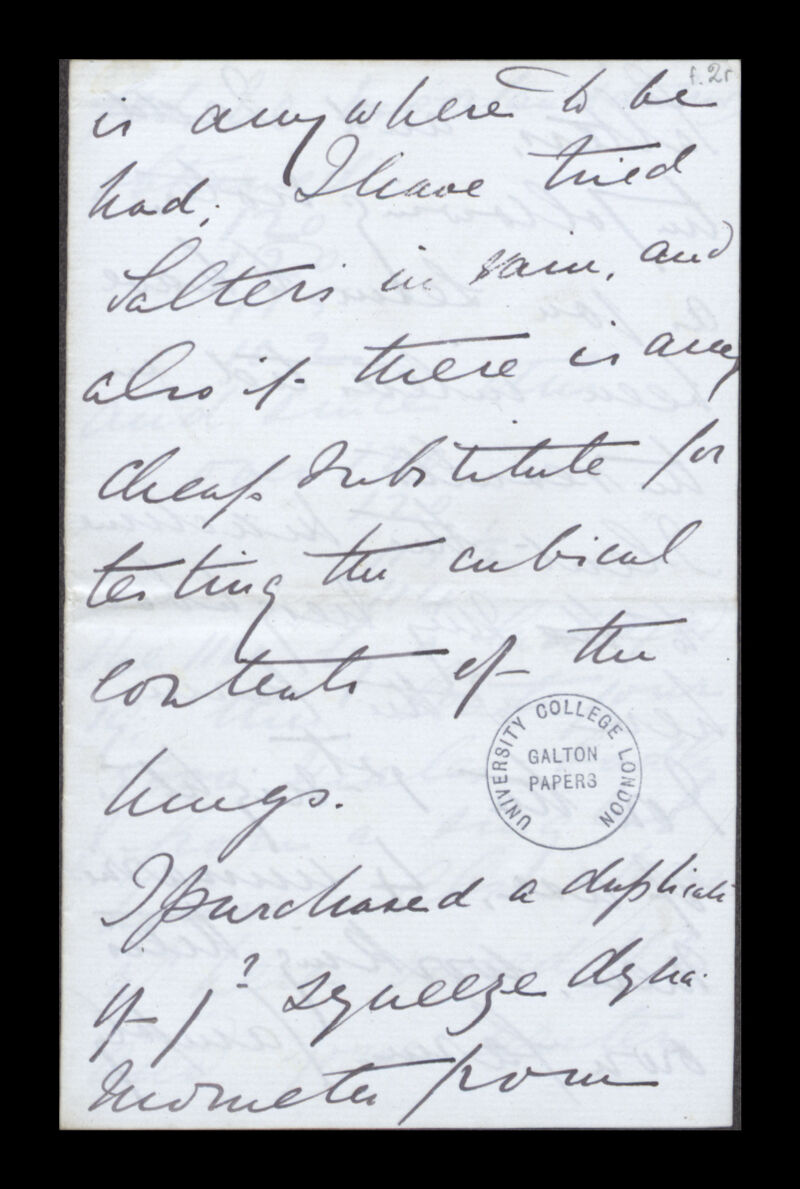 f. 2r
is anywhere to be
had; I have tried
Salters in vain, and
also if there is any
cheap substitute for
testing the cubical
contents of the
lungs.
UNIVERSITY COLLEGE LONDON
GALTON
PAPERS
I purchased a duplicate
of yr squeeze dyna-
mometer from